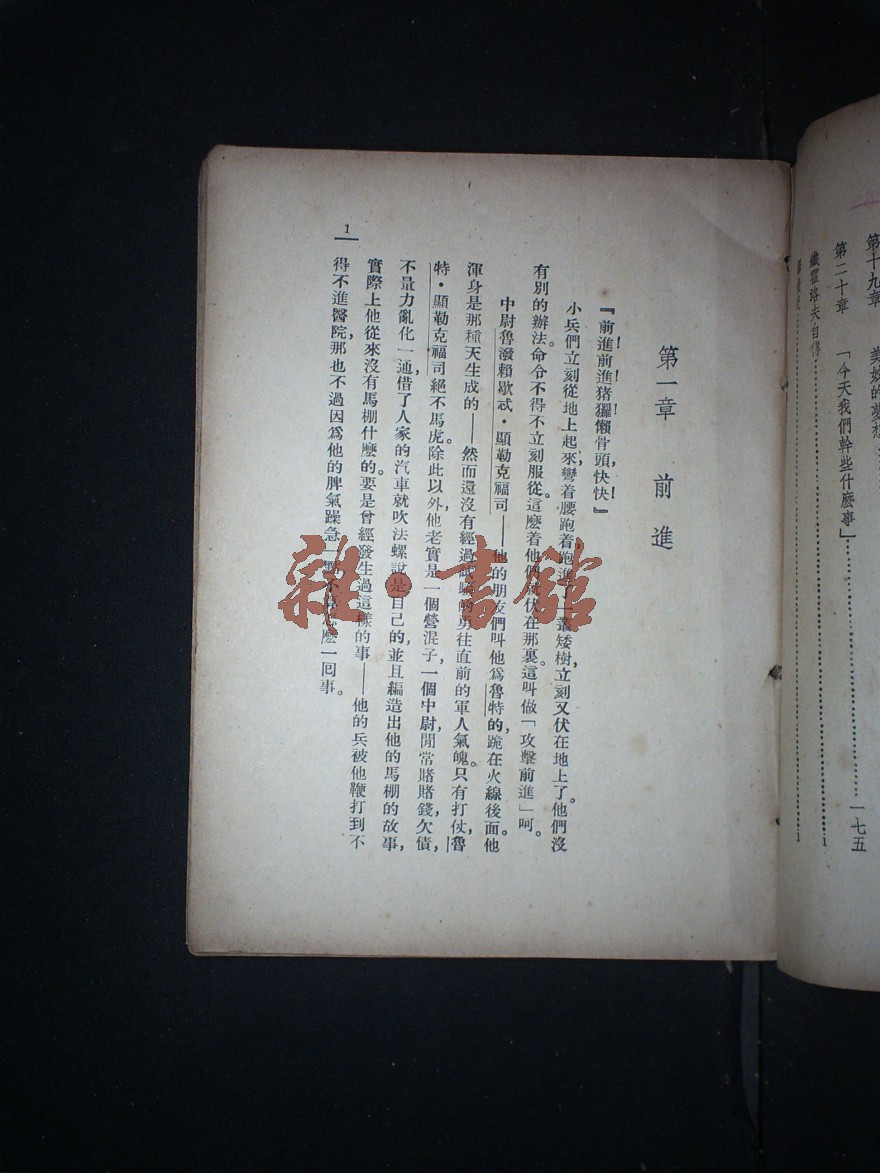 第十九章 美妙的夢想
第二十章 「今天我們幹些什麽事」 一七五
鐵霍珞夫自傳 1
第一章 前進
『前進!前進!猪玀!懶骨頭,快!快!』
小兵們立刻從地上起來,彎着腰跑着,跑進了一叢矮樹,立刻又伏在地上了。他們沒
有別的辦法。命令不得不立刻服從。這麽着他們就伏在那裏。這叫做「攻擊前進」呵。
中尉魯潑賴歇忒·顯勒克福司——他的朋友們叫他爲魯特的,跪在火線後面。他
渾身是那種天生成的——然而還沒有經過戰場的勇往直前的軍人氣魄。只有打仗,魯
特·顯勒克福司絕不馬虎。除此以外,他老實是一個營混子,一個中尉,閒常賭賭錢,欠債,
不量力亂化一通,借了人家的汽車就吹法螺說是自己的,並且編造出他的馬棚的故事,
實際上他從來沒有馬棚什麽的。要是曾經發生過這樣的事——他的兵被他鞭打到不
得不進醫院,那也不過因爲他的脾氣躁急一點不算怎麽一回事。
1
雜·書館